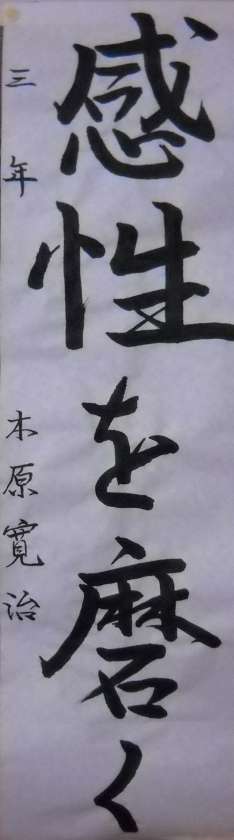 感性を磨く
三年 木原寛治